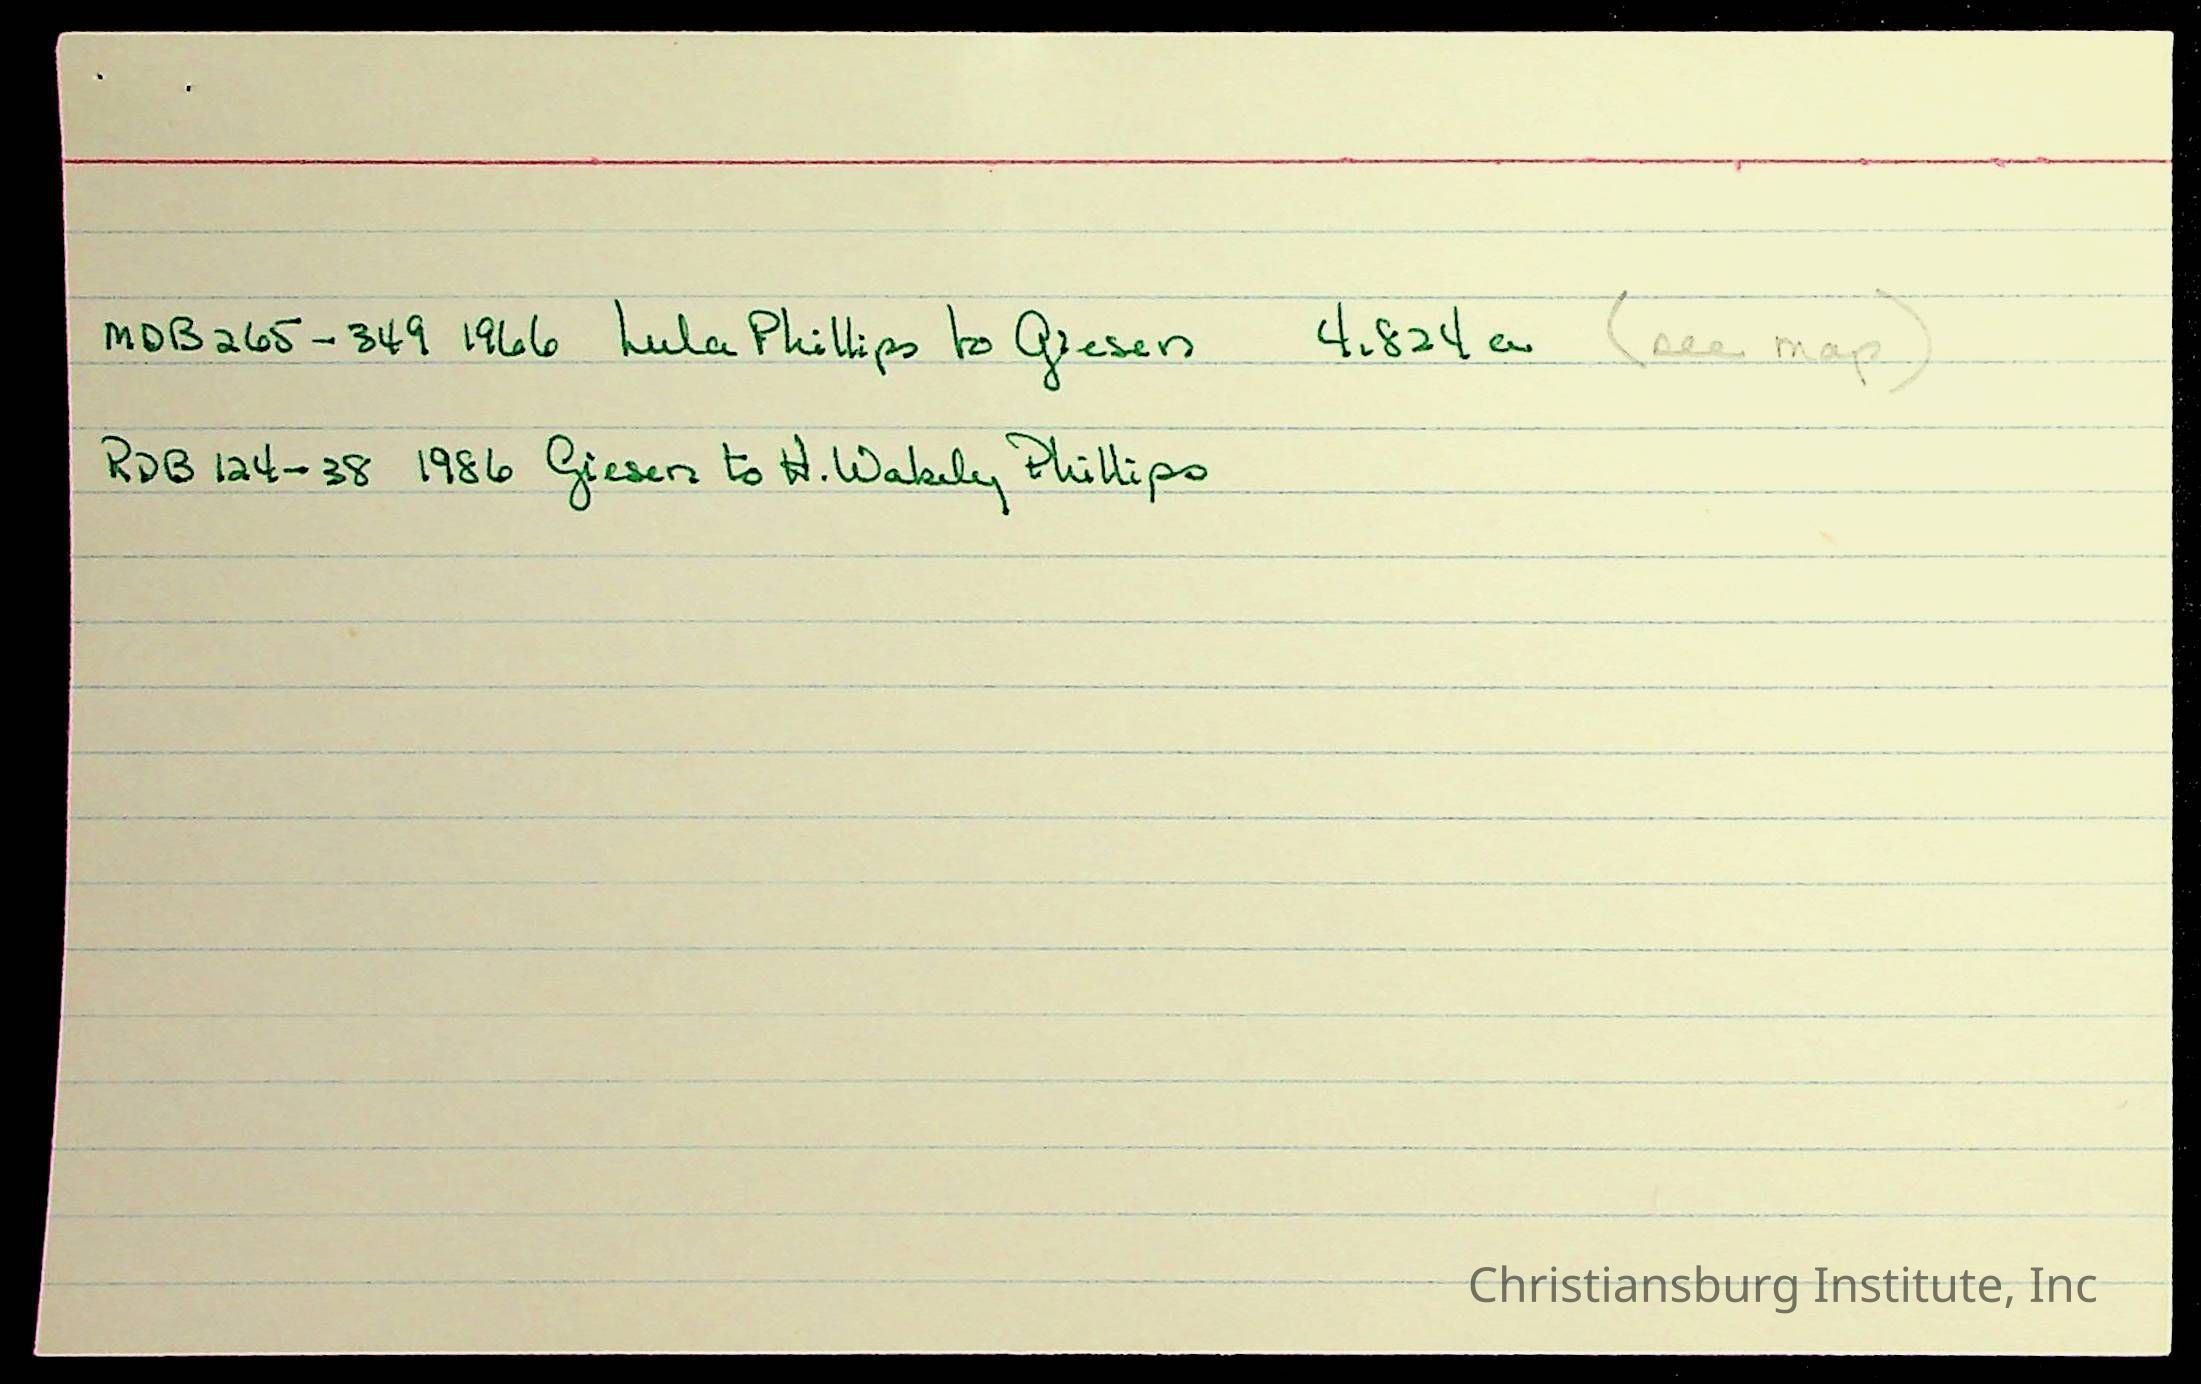 MDB 265-349 1966 Lula Phillips to Giesen 4.824 a (see map)
RDB 124-38 1986 Giesen to H. Wakely Phillips
Christiansburg Institute, Inc